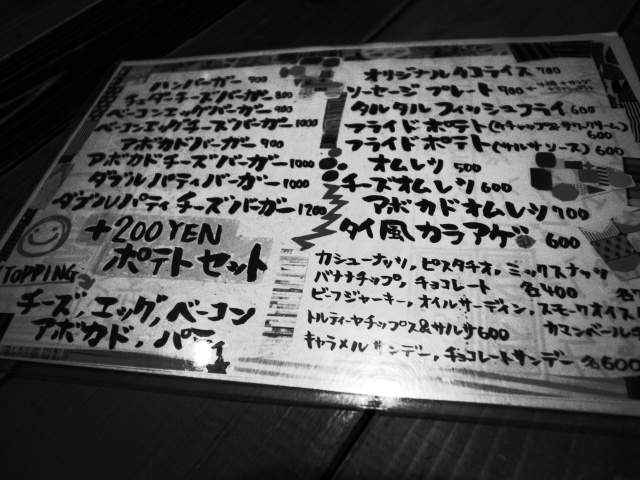 ハンバーガー 700
チェダーチーズバーガー 800
ベーコンエッグバーガー 900
ベーコンエッグチーズバーガー 1000
アボカドバーガー 900
アボカドチーズバーガー 1000
ダブルパティバーガー 1000
ダブルパティチーズバーガー 1200
+200YEN
ポテトセット
TOPPING
チーズ,エッグ,ベーコン
アボカド,パティ
オリジナルタコライス 700
ソーセージプレート 900
タルタルフィッシュフライ 600
フライドポテト(ケチャップ&サワークリーム)
600
フライドポテト(サルサソース) 600
オムレツ 500
チーズオムレツ 600
アボカドオムレツ 700
タイ風カラアゲ 600
カシューナッツ,ピスタチオ,ミックスナッツ
バナナチップ,チョコレート 各400
ビーフジャーキー,オイルサーディン,スモークオイス
トルティーヤチップス&サルサ600 カマンベール
キャラメルサンデー,チョコレートサンデー 各600